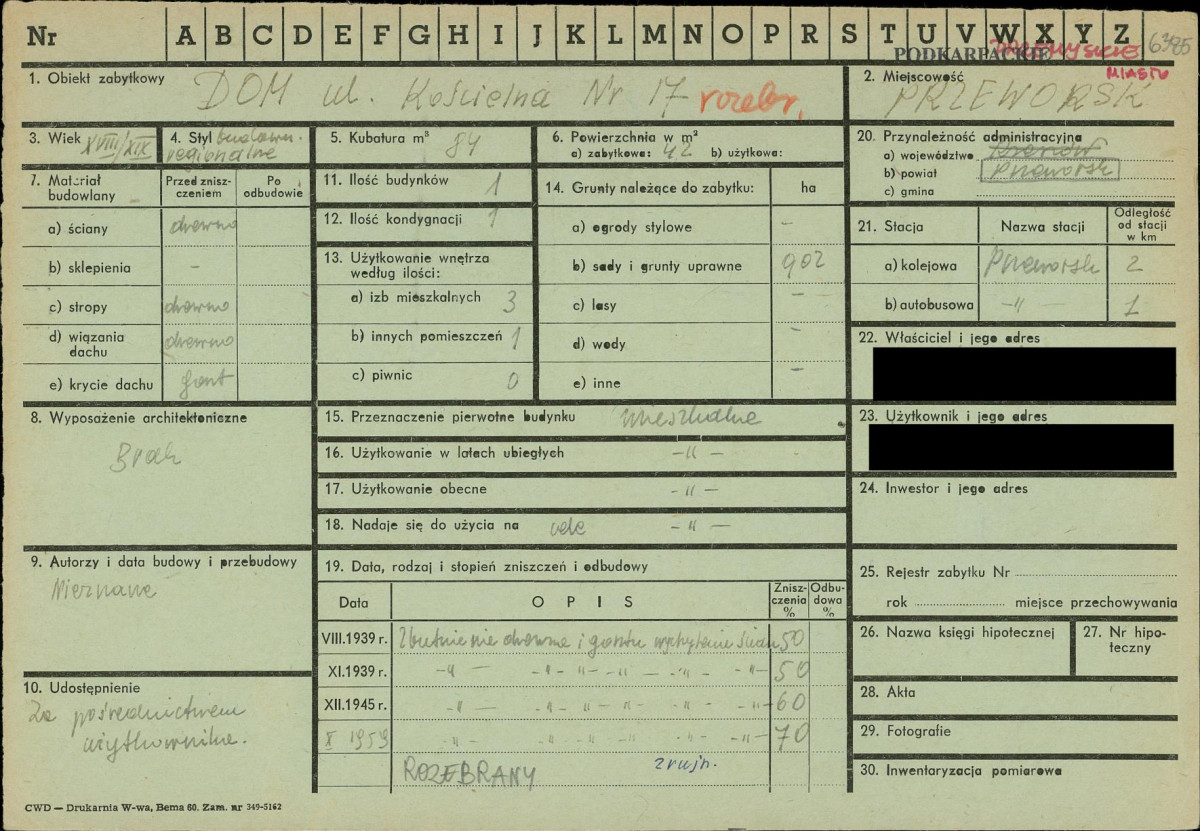 Nr A B C D E F G H I J K L M N O P R S T U V W X Y Z
PODKARPACKIE
PRZEMYSKIE
6385
1. Obiekt zabytkowy DOM ul. Kościelna Nr 17 rozebr.
2. Miejscowość MIASTO
PRZEWORSK
3. Wiek XVIII/XIX
4. Styl budown. regionalne
5. Kubatura m³ 84
6. Powierzchnia w m²
a) zabytkowa: 42 b) użytkowa:
20. Przynależność administracyjna
a) województwo Rzeszów
b) powiat Przeworsk
c) gmina
7. Materiał budowlany
Przed zniszczeniem
Po odbudowie
a) ściany drewno
b) sklepienia -
c) stropy drewno
d) wiązania dachu drewno
e) krycie dachu gont
11. Ilość budynków 1
12. Ilość kondygnacji 1
13. Użytkowanie wnętrza według ilości:
a) izb mieszkalnych 3
b) innych pomieszczeń 1
c) piwnic 0
14. Grunty należące do zabytku: ha
a) ogrody stylowe -
b) sady i grunty uprawne 902
c) lasy -
d) wody -
e) inne -
21. Stacja Nazwa stacji Odległość od stacji w km
a) kolejowa Przeworsk 2
b) autobusowa -"- 1
22. Właściciel i jego adres
23. Użytkownik i jego adres
8. Wyposażenie architektoniczne
Brak
15. Przeznaczenie pierwotne budynku mieszkalne
16. Użytkowanie w latach ubiegłych -"-
17. Użytkowanie obecne -"-
18. Nadaje się do użycia na cele -"-
24. Inwestor i jego adres
9. Autorzy i data budowy i przebudowy
Nieznane
19. Data, rodzaj i stopień zniszczeń i odbudowy
Data OPIS Zniszczenia % Odbudowa %
VIII.1939 r. Zbutwienie drewna i gontu wychylenie ścian 50
XI.1939 r. -"- -"- -"- -"- -"- 50
XII.1945 r. -"- -"- -"- -"- -"- 60
X 1959 -"- -"- -"- -"- -"- 70
ROZEBRANY zrujn.
25. Rejestr zabytku Nr
rok miejsce przechowywania
26. Nazwa księgi hipotecznej
27. Nr hipoteczny
10. Udostępnienie
Za pośrednictwem
użytkownika.
28. Akta
29. Fotografie
30. Inwentaryzacja pomiarowa
CWD — Drukarnia W-wa, Bema 60. Zam. nr 349-5162